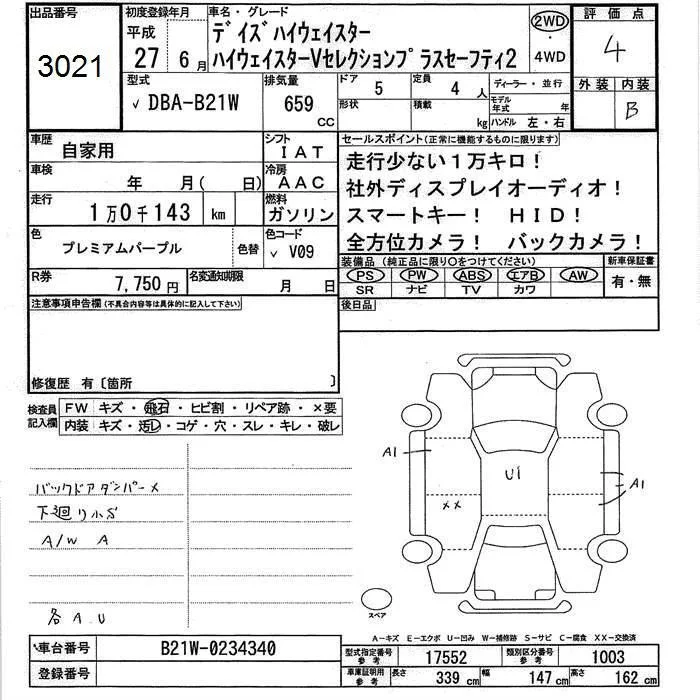 出品番号
3021
初度登録年月
平成
27年 6月
車名・グレード
デイズ ハイウェイスター
ハイウェイスターVセレクションプラスセーフティ2
2WD
・
4WD
評価点
4
外装 内装
B
型式
✓ DBA-B21W
排気量
659
CC
ドア
5
定員
4 人
形状
積載
kg
ディーラー・並行
モデル年式 年
ハンドル 左・右
車歴
自家用
シフト
IAT
車検
年 月( 日)
冷房
AAC
走行
1万0千143 km
燃料
ガソリン
色
プレミアムパープル
色替
色コード
✓ V09
R券
7,750円
名変通知期限
月 日
セールスポイント(正常に機能するものに限ります)
走行少ない1万キロ!
社外ディスプレイオーディオ!
スマートキー! HID!
全方位カメラ! バックカメラ!
装備品(純正品に限り○をつけてください)
PS PW ABS エアB AW
SR ナビ TV カワ
新車保証書
有・無
後日品
注意事項申告欄(不具合内容等は具体的に記入して下さい)
修復歴 有〔箇所 〕
検査員
記入欄
FW キズ・飛石・ヒビ割・リペア跡・×要
内装 キズ・汚レ・コゲ・穴・スレ・キレ・破レ
バックドアダンパーメ
下廻りルS
A/W A
各A.U
A1
U1
A1
××
スペア
A-キズ E-エクボ U-凹み W-補修跡 S-サビ C-腐食 XX-交換済
車台番号
B21W-0234340
登録番号
型式指定番号
参考
17552
類別区分番号
参考
1003
車庫証明用
参考
長さ 339 cm
幅 147 cm
高さ 162 cm